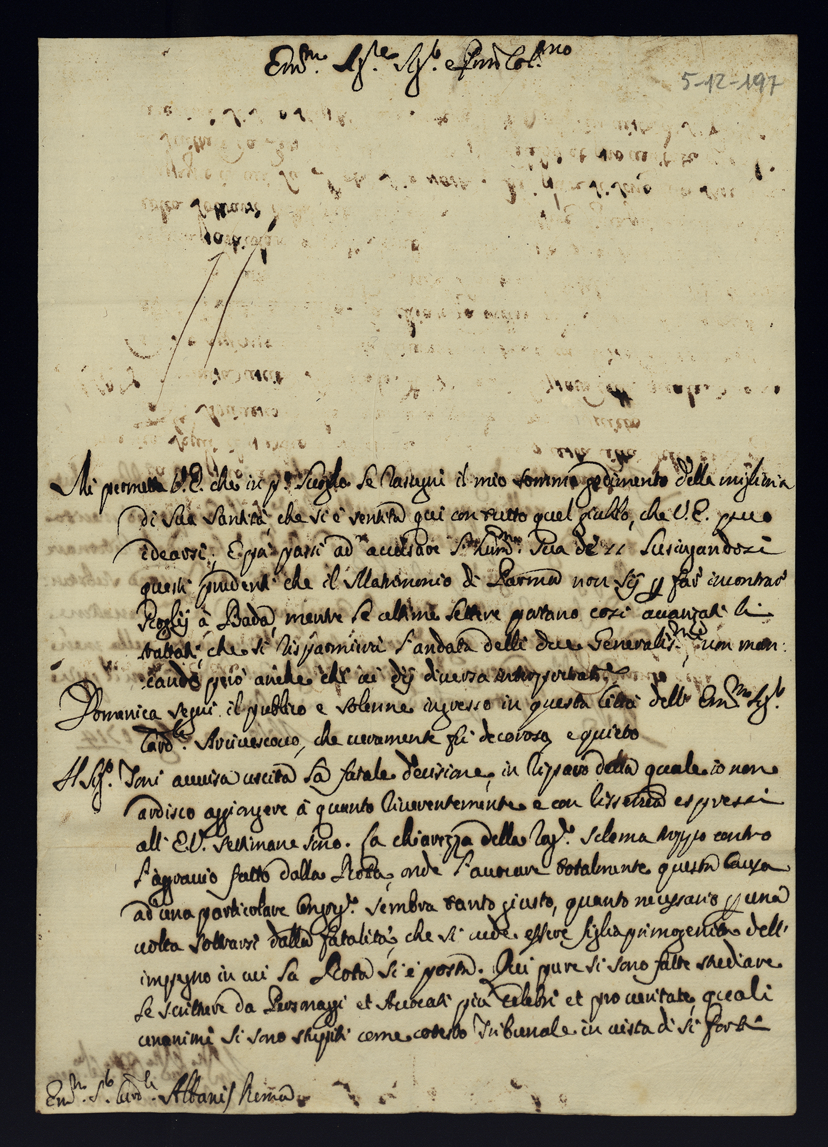 Em.mo Sig.re Sig.r e Pron Col.mo
5-12-197
Mi permetta V. E. che in p.o Scoglo Le rasegni il mio sommo godimento della miglioria
di Sua Santità, che si è sentita qui con tutto quel giubilo, che V. E. puo
idearsi; E pa passi ad accusare l' Sua de 11
questi prudenti che il Matrimonio di Parma non sij p far incontrar
Scoglij à Bada, mentre le ultime lettere portano cosi avanzati li
trattati, che si risparmierà l'andata delli due Generalis.mi non man:
cando però anche chi ai dij diversa interpretat.e
Domenica seguì il publico e solenne ingresso in questa Città dell' Em.mo Sig.r
Card.le Arcivescovo, che veramente fù decoroso, e quieto
Il Sig.r Toni avvisa uscita la fatale decisione, in riparo della quale io non
ardisco aggiongere à quanto riverentemente e con espressi
all' E.V. Settimane sono. La chiarezza della rag.e sclama troppo contro
l'agravio fatto dalla Rota, onde l'avocare totalmente questa Causa
ad una particolare Congreg.e sembra tanto giusto, quanto necessario p una
volta sottrarsi dalla fatalità, che si vede essere figlia primogenita dell'
impegno in cui la Rota si è posta. Qui pure si sono fatte studiare
le scritture da Personaggi et Avocati più celebri et pro veritate, quali
unanimi si sono stupiti come cotesto Tribunale in vista di sì forti
Em.mo S.r Card.le Albani Roma